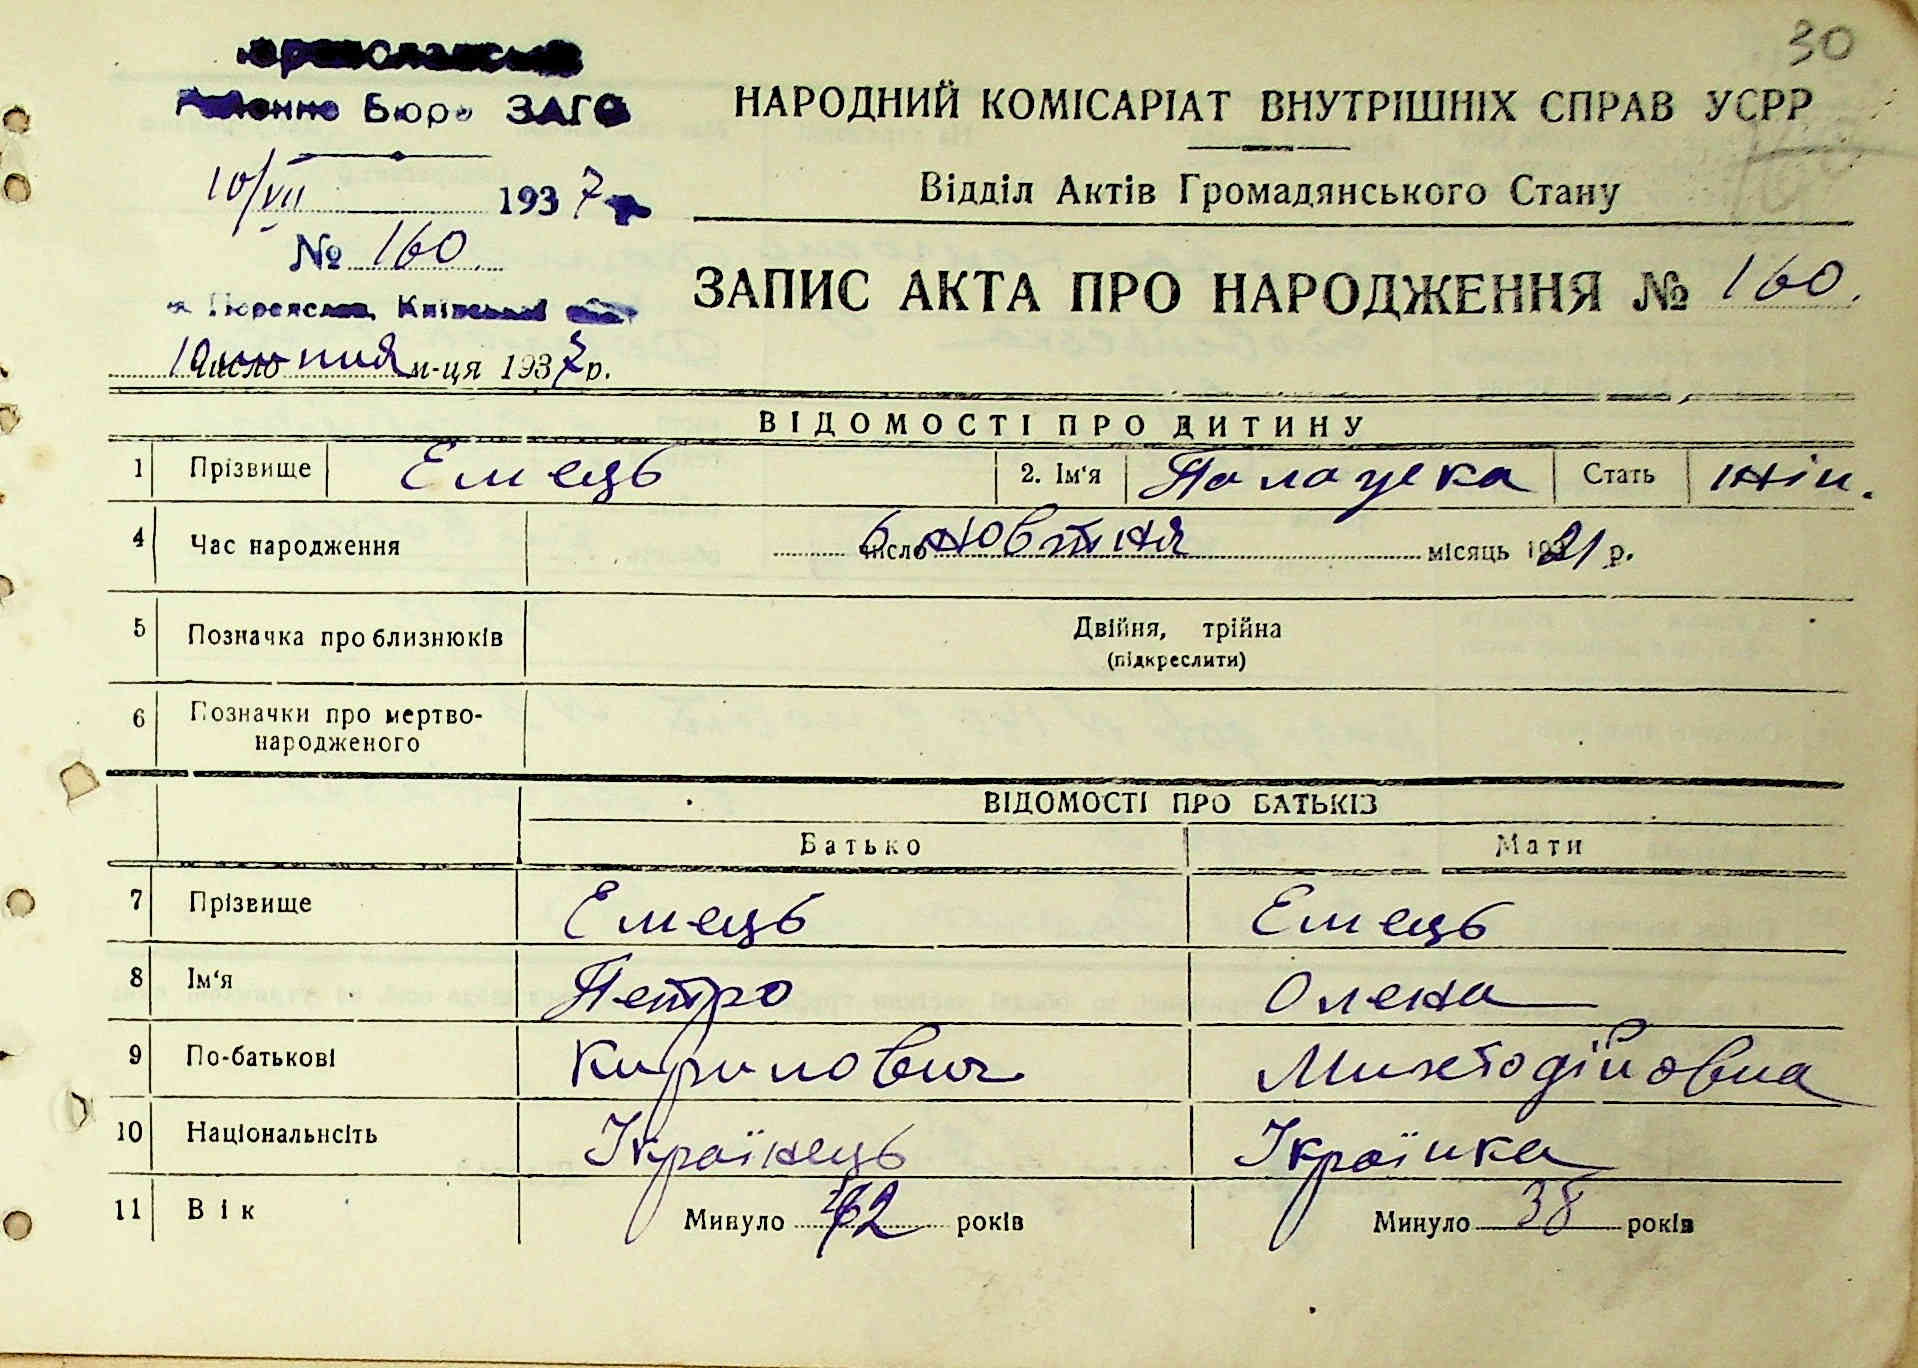 30
Районне Бюро ЗАГС
НАРОДНИЙ КОМІСАРІАТ ВНУТРІШНІХ СПРАВ УСРР
Відділ Актів Громадянського Стану
10/VII 1937
№ 160.
м. Переяслав, Київської
ЗАПИС АКТА ПРО НАРОДЖЕННЯ № 160.
10 число липня м-ця 1937 р.
ВІДОМОСТІ ПРО ДИТИНУ
1 Прізвище Емець 2. Ім'я Палажка Стать жін.
4 Час народження 6 число жовтня місяць 1921 р.
5 Позначка про близнюків Двійня, трійна
(підкреслити)
6 Позначки про мертво-
народженого
ВІДОМОСТІ ПРО БАТЬКІВ
Батько Мати
7 Прізвище Емець Емець
8 Ім'я Петро Олена
9 По-батькові Кирилович
10 Національність Українець Українка
11 Вік Минуло 42 років Минуло 38 років